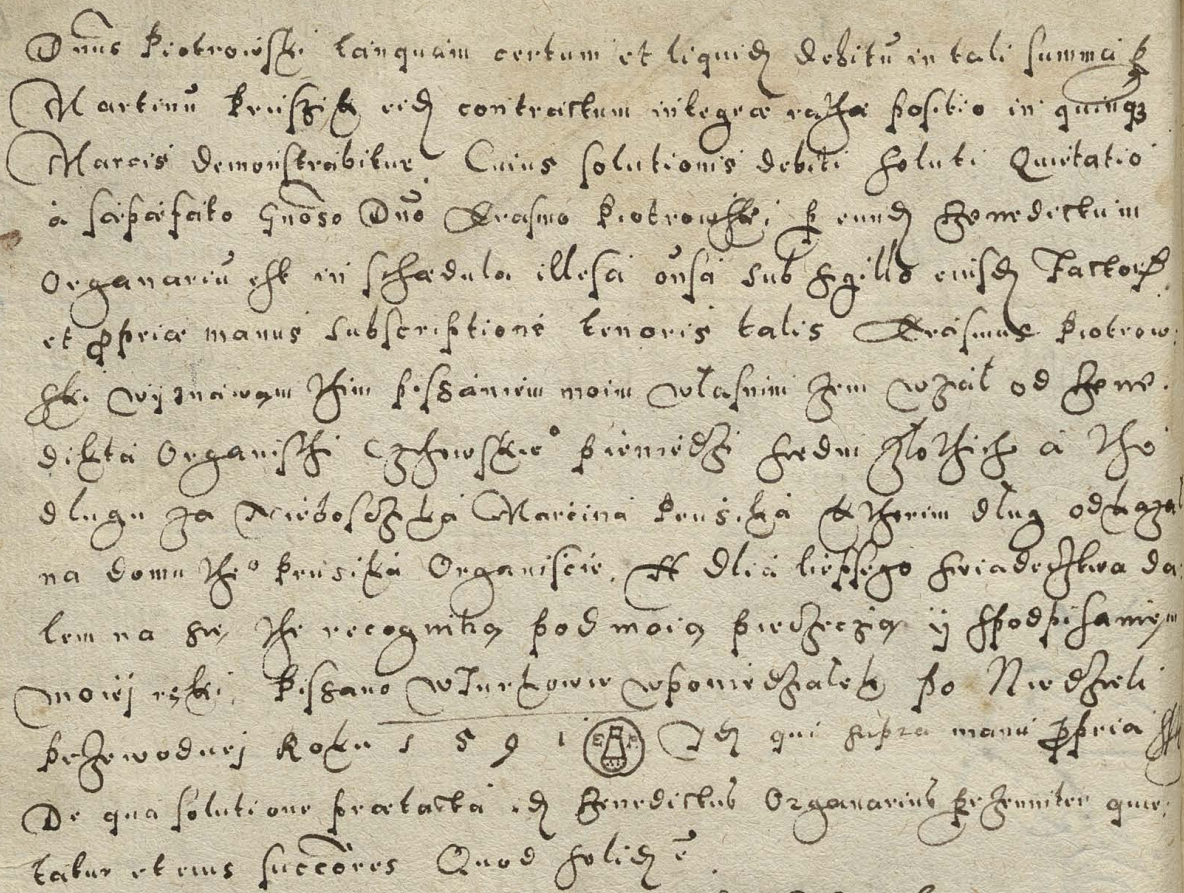 Dnus Piotrowski tanquam certum et liquid debitū in tali summa p
Martinū Prusik eid contractum integræ posito in quinq
Marcis demonstrabitur Cuius solutionis debiti soluti Quietatio
à sæpæfato Gnoso Dno Erasmo Piotrowski p eund Benedictum
Organariū est in schædula illesa visa sub sigillo eiusd Factoris
et ppriæ manus subscriptione tenoris talis Erasmus Piotrow
ski wyznawam thim pissaniem moim własnim zem wzial od Bene
dikta Organisthi pieniędzi siedm zlothich à tho
dlugu za Niebosczika Marcina Prusika kthorim dlug odkazal
na domu theo Prusika Organiscie. A dlia liepssego swiadecztwa da
lem na się the recognitią pod moią pieczęczią ÿ spodpisaniem
moiej ręki. Pissano wponiedzialek po Niedzieli
przewodnej Roku 1591 Id qui supra manu ppria
De qua solutione prætacta id Benedictus Organarius præsenter quie
tatur et eius succores Quod solid ē